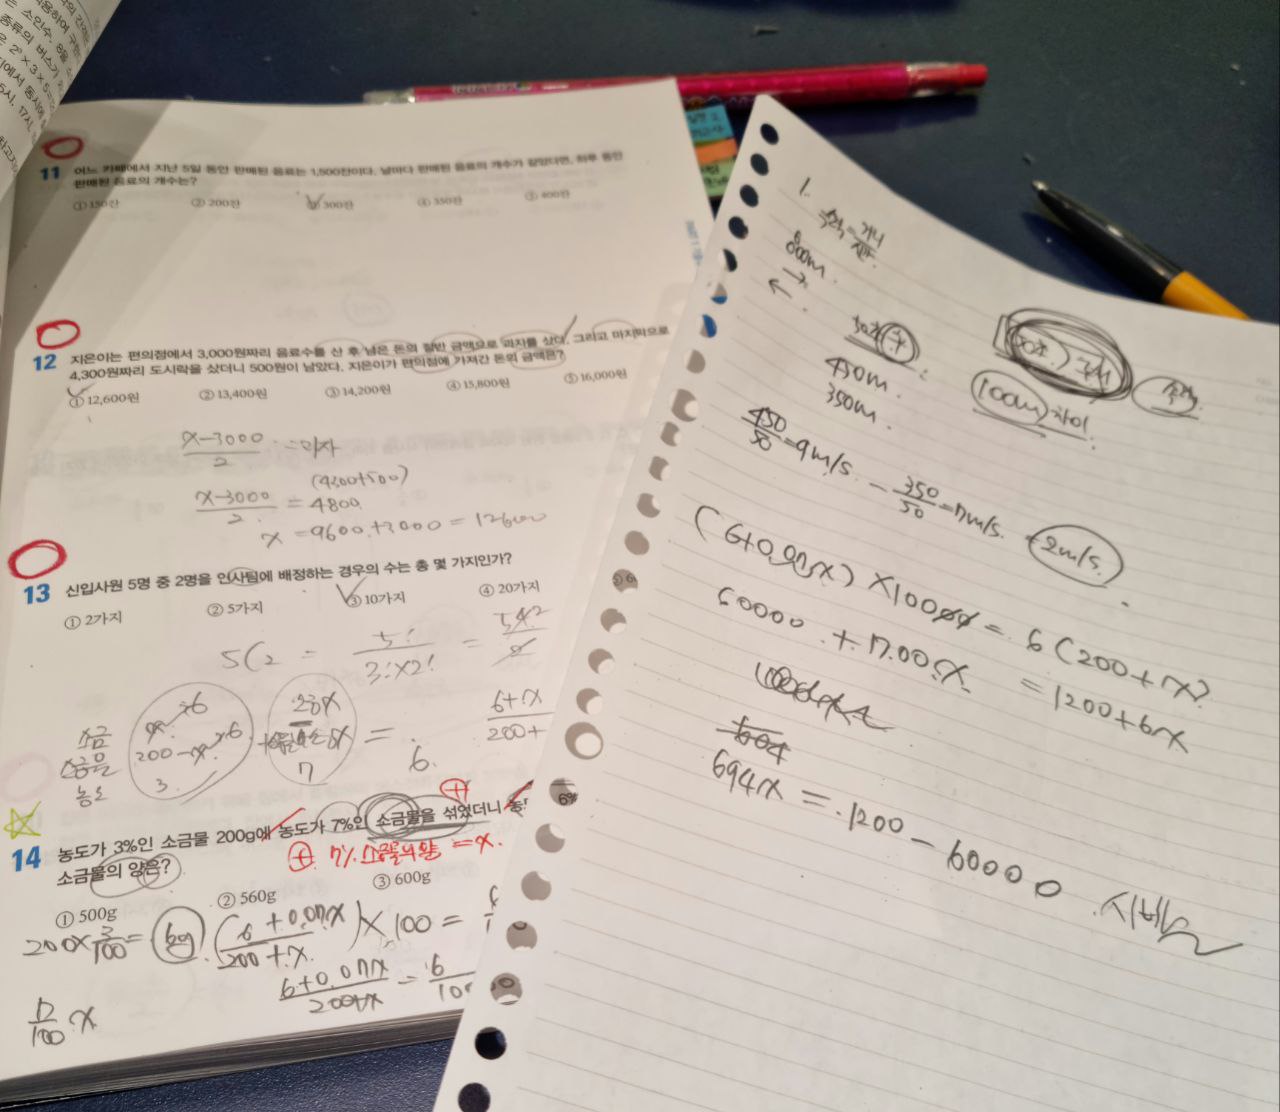 11 어느 카페에서 지난 5일 동안 판매된 음료는 1,500잔이다. 날마다 판매된 음료의 개수가 같았다면, 하루 동안
판매된 음료의 개수는?
① 150잔 ② 200잔 ③ 300잔 ④ 350잔 ⑤ 400잔
12 지은이는 편의점에서 3,000원짜리 음료수를 산 후 남은 돈의 절반 금액으로 과자를 샀다. 그리고 마지막으로
4,300원짜리 도시락을 샀더니 500원이 남았다. 지은이가 편의점에 가져간 돈의 금액은?
① 12,600원 ② 13,400원 ③ 14,200원 ④ 15,800원 ⑤ 16,000원
x-3000
2
= 과자
(4300+500)
x-3000
2
= 4800
x = 9600+3000 = 12600
13 신입사원 5명 중 2명을 인사팀에 배정하는 경우의 수는 총 몇 가지인가?
① 2가지 ② 5가지 ③ 10가지 ④ 20가지
5C2 = 5! / 3!×2! =
소금
소금물
농도
200
3
7
= 6
6+
200+
14 농도가 3%인 소금물 200g에 농도가 7%인 소금물을 섞었더니 농
6%
소금물의 양은?
7% 소금물의 양 = x.
① 500g ② 560g ③ 600g
200×3/100 = 6g (6+0.07x / 200+x) × 100 =
6+0.07x / 200+x = 6 / 10
/100 x
1.
속력=거리/시간
800m
→
←
450m
350m
100m 차이
속력
450/50 = 9m/s - 350/50 = 7m/s. 2m/s.
(6+0.07x) ×10000 = 6(200+x)
60000 + 700x = 1200+6x
694x = 1200 - 60000 시발